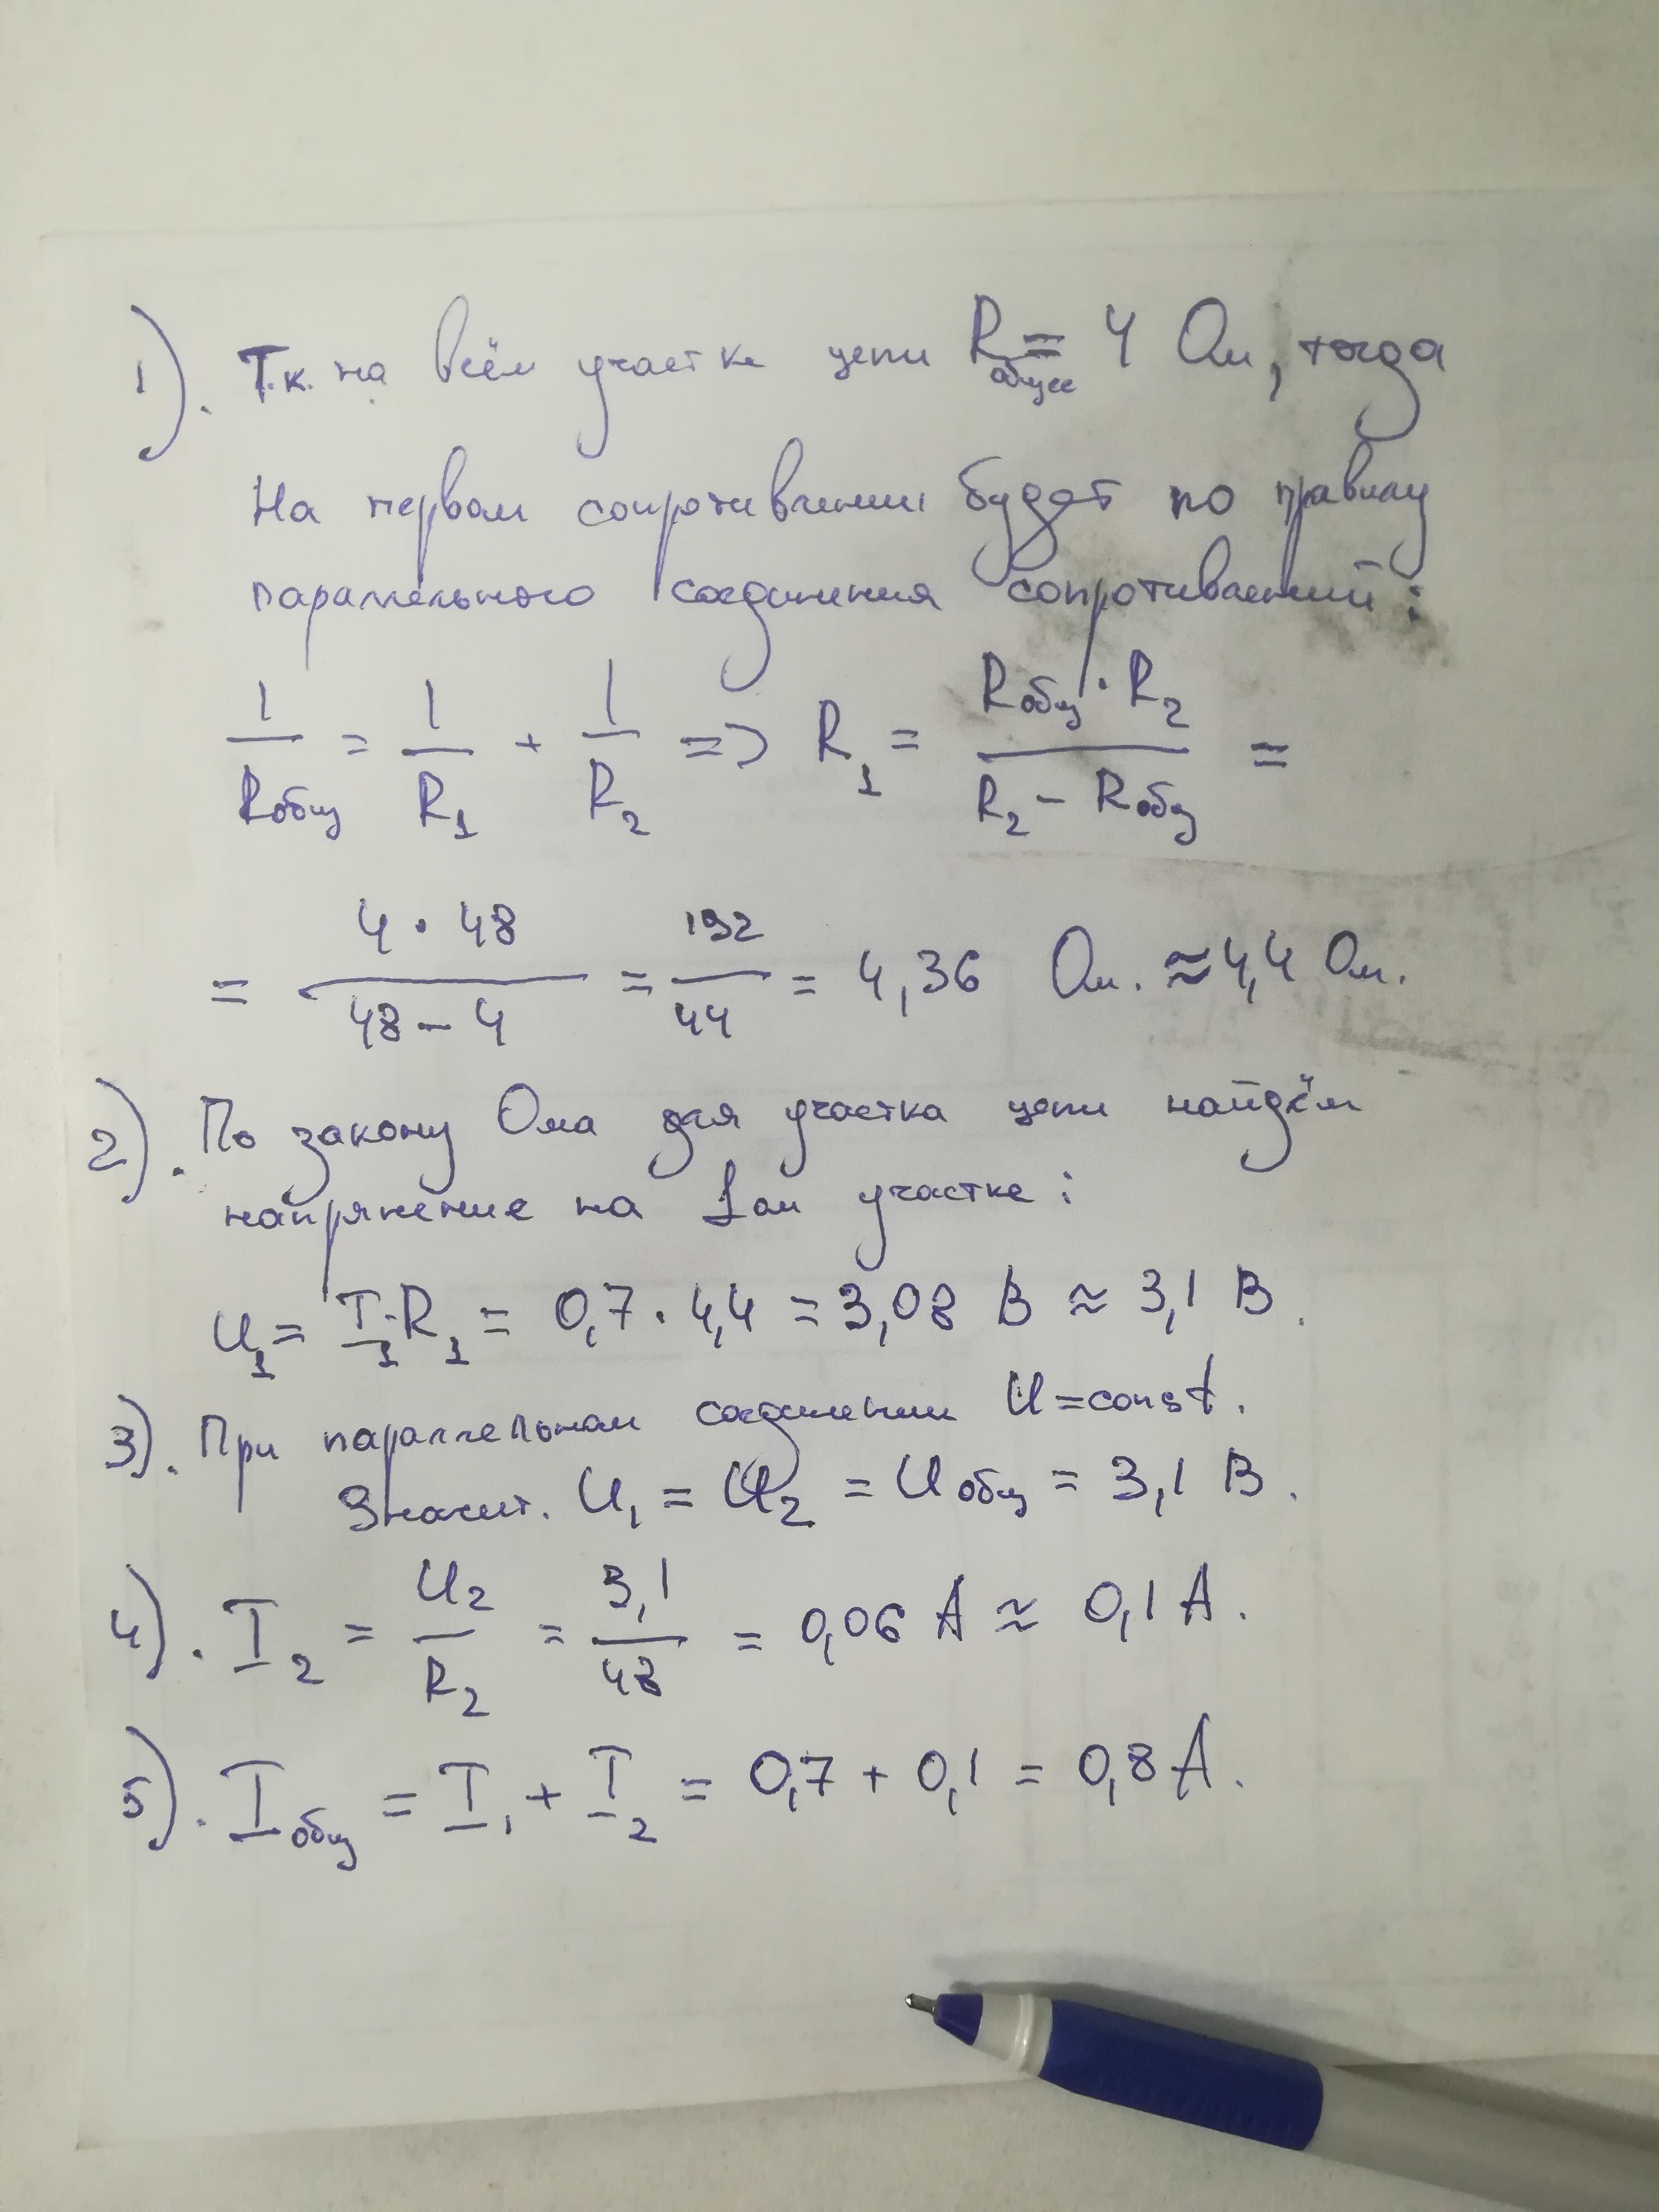 1). Т.к. на всём участке цепи Rобщее = 4 Ом, тогда
На первом сопротивлении будет по правилу
параллельного соединения сопротивлений:
1/Rобщ = 1/R1 + 1/R2 => R1 = Rобщ · R2 / R2 - Rобщ =
= 4 · 48 / 48 - 4 = 192 / 44 = 4,36 Ом. ≈ 4,4 Ом.
2). По закону Ома для участка цепи найдём
напряжение на 1ом участке:
U1 = I1·R1 = 0,7 · 4,4 = 3,08 В ≈ 3,1 В.
3). При параллельном соединении U = const.
Значит. U1 = U2 = Uобщ = 3,1 В.
4). I2 = U2 / R2 = 3,1 / 48 = 0,06 А ≈ 0,1 А.
5). Iобщ = I1 + I2 = 0,7 + 0,1 = 0,8 А.